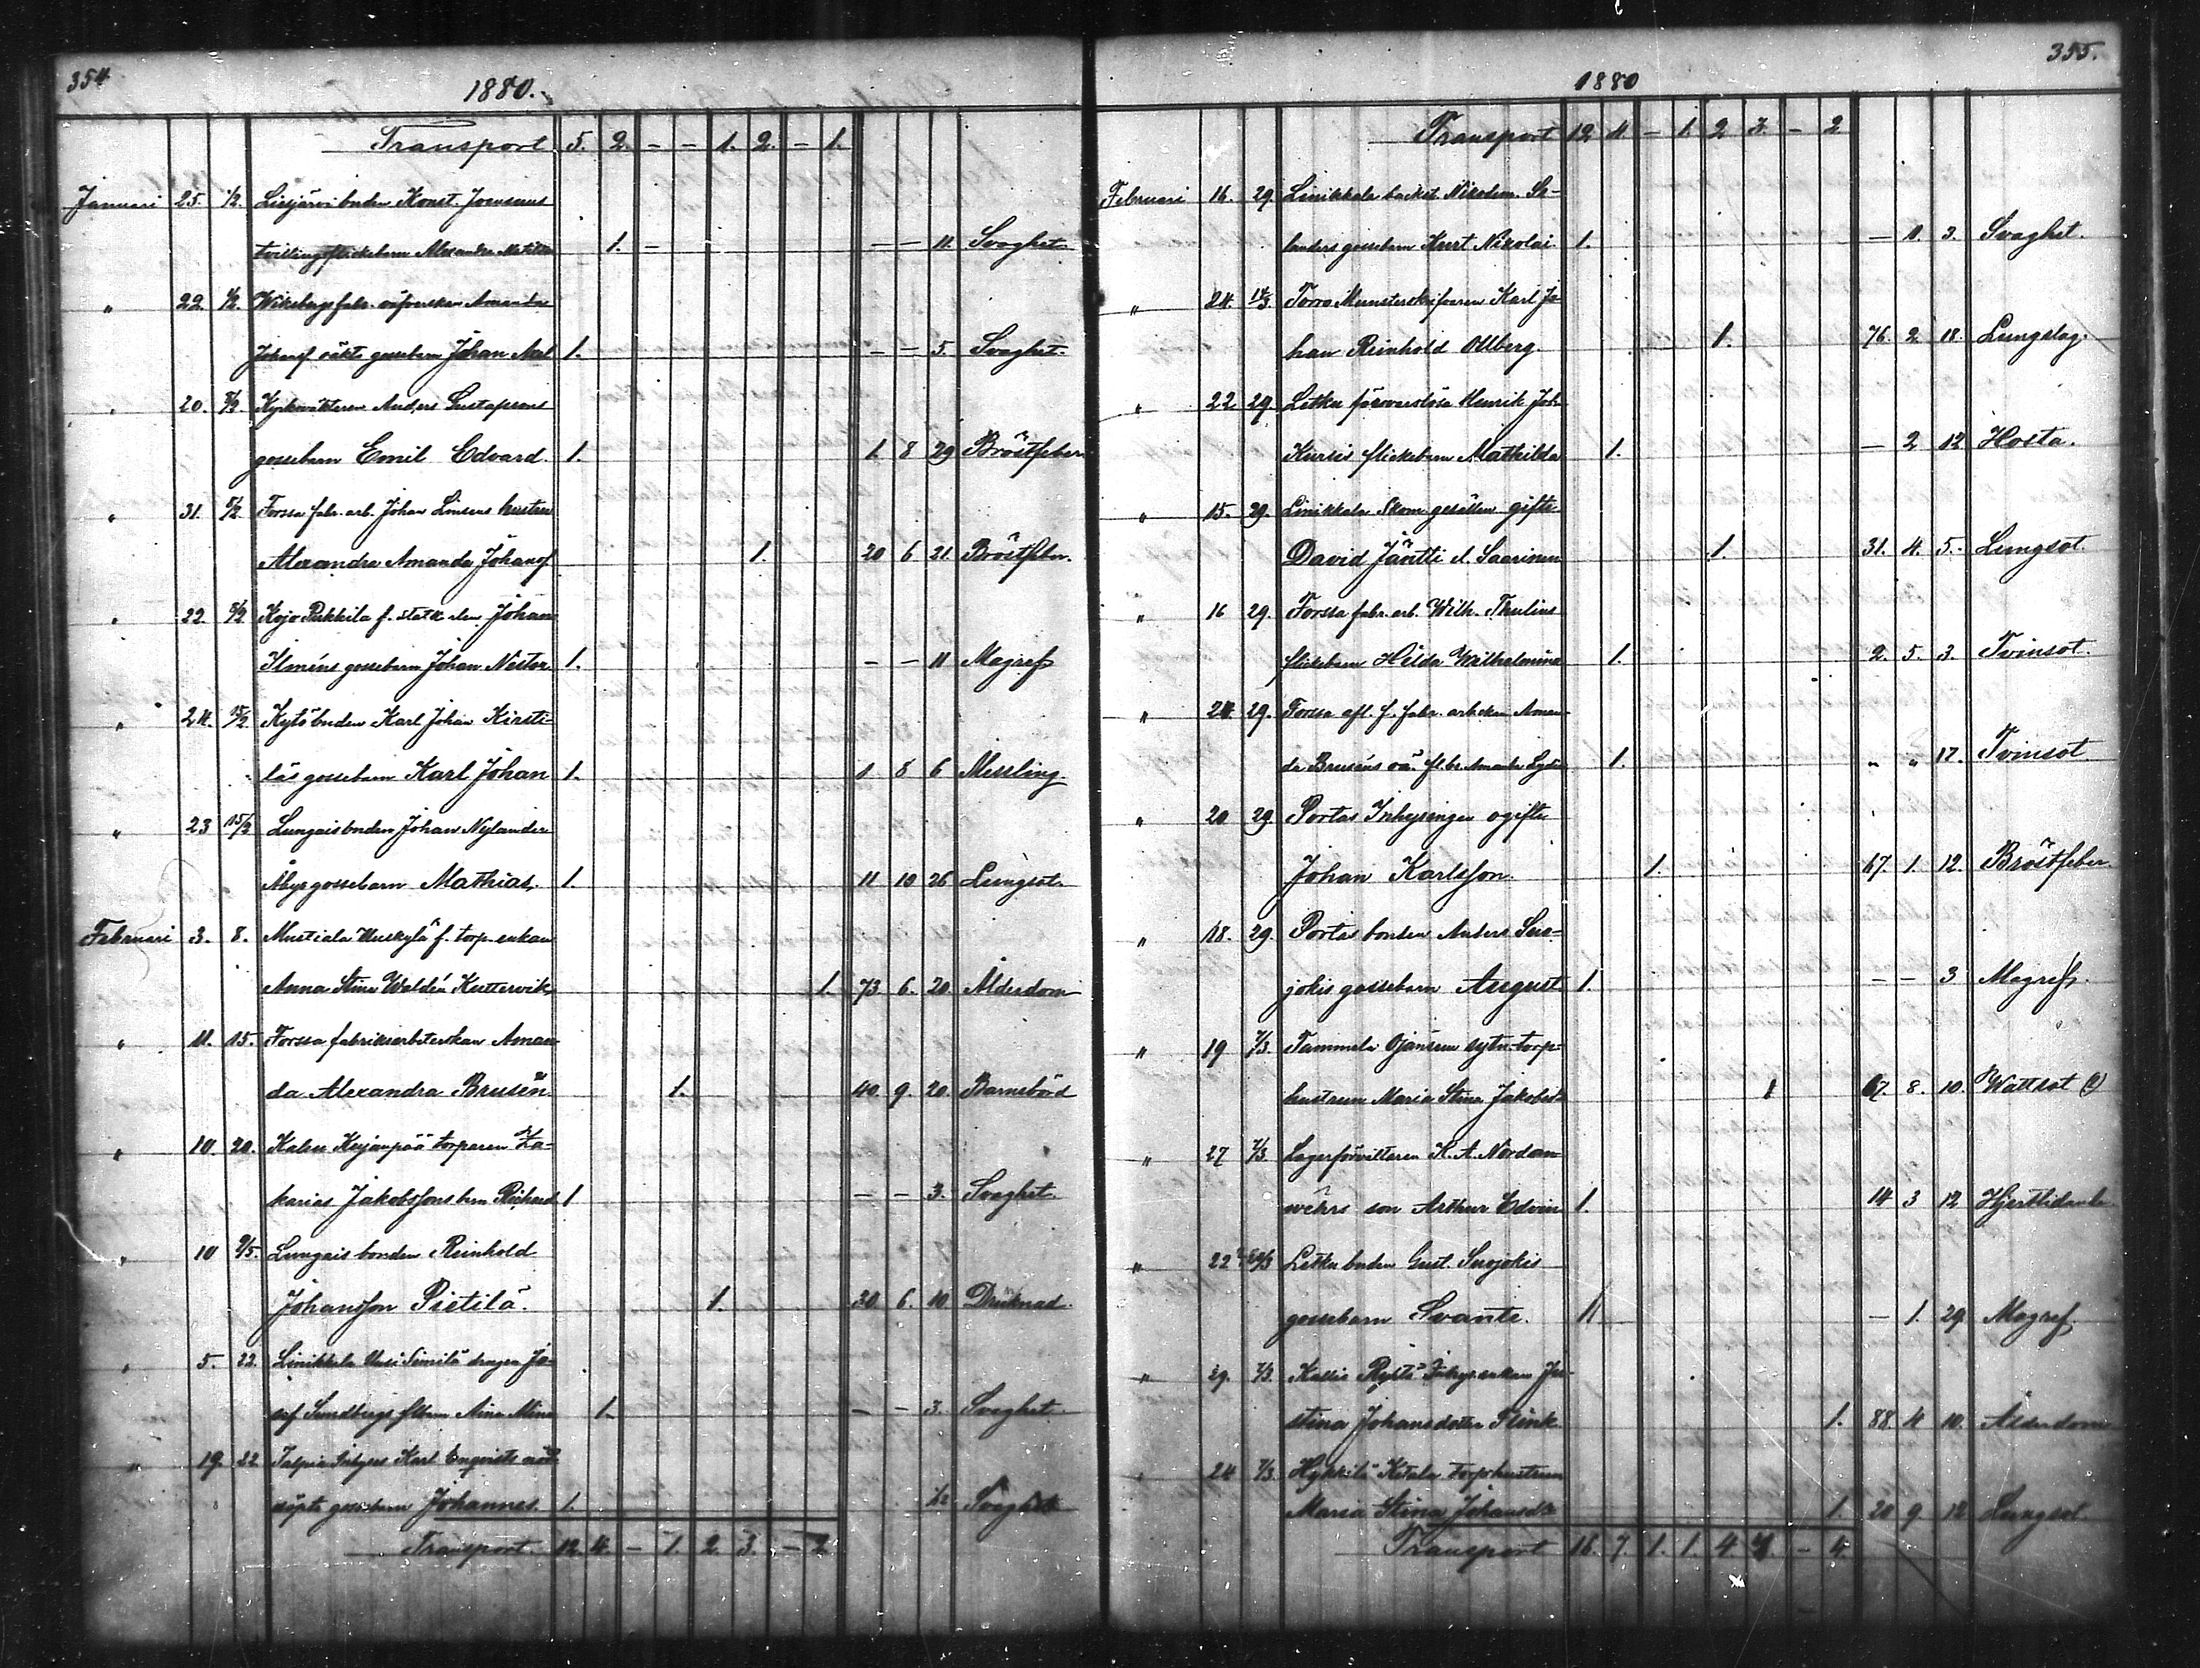 354
1880.
Transport 5. 2. – – 1. 2. – 1.
Januari 25. 1/2. Liesjärvi bnden Konst. Joensuus
tvillingsflickebarn Alexandra Matilda 1. – – – 11. Svaghet
" 22. 1/2. Wiksbergs fabr. väfverskan Amanda
Johansd. oäkta gossebarn Johan Axel 1. – – 5. Svaghet.
" 20. 8/2 Kyrkoväktaren Anders Gustafssons
gossebarn Emil Edvard. 1. 1. 8 29 Bröstfeber
" 31. 8/2. Forssa fabr. arb. Johan Linséns hustru
Alexandra Amanda Johansd. 1. 20 6 21. Bröstfeber.
" 22. 8/2 Kojo Pukkila f. Johan
Ilméns gossebarn Johan Nestor 1. – – 11 Magref
" 24. 15/2. Kytö bnden Karl Johan Kirsti-
läs gossebarn Karl Johan 1. 1 8 6 Messling.
" 23 15/2 Lungais bnden Johan Nylander
gossebarn Mathias. 1. 11 10 26 Lungsot.
Februari 3. 8. Mustiala Uuskylä f. torp. enkan
Anna Stina Waldén Kuttervik 1. 73 6. 20. Ålderdom
" 11. 15. Forssa fabriksarbeterskan Aman-
da Alexandra Brusén. 1. 40. 9. 20. Barnsbörd
" 10. 20. Kalsu Kujanpää torparen Za-
karias Jakobssons brn Richard 1 – – 3. Svaghet.
" 10 9/5. Lungais bonden Reinhold
Johansson Pietilä. 1. 30. 6. 10. Drunknad.
" 5. 22. Linikkala Uusi Simila drengen Jo-
sef Sundbergs flbarn Aina Mina 1. – – 3. Svaghet.
" 19. 22. Karl Enqvists
döpta gossebarn Johannes. 1. 1/2 Svaghet
Transport 12. 4. – 1. 2. 3. – 2
355.
1880
Transport 12 4 – 1. 2 3. – 2
Februari 16. 29. Linikkala backst. Nikodem. Se-
landers gossebarn Kurt Nikolai. 1. – 11. 3. Svaghet.
" 24. 14/3. Torro Munsterskrifvaren Karl Jo-
han Reinhold Ollberg. 1. 76. 2. 18. Lungslag.
" 22 29. Letku försvarslöse Henrik Joh.
Kursis flickebarn Mathilda 1. – 2 12 Hosta.
" 15. 29. Linikkala Skom. gesällen gifte
David Jäntti el. Saarinen 1. 31. 4. 5. Lungsot.
" 16 29. Forssa fabr. arb. Wilh. Thulins
flickebarn Hilda Wilhelmina 1. 2. 5. 3. Tvinsot.
" 24. 29. Forssa afl. f. fabr. arb.skan Aman-
da Bruséns oä. fl.br. Amanda Lydia 1. " " 17. Tvinsot
" 20 29. Portas Inhysingen ogifte
Johan Karlsson. 1. 67. 1. 12. Bröstfeber.
" 18. 29. Portas bonden Anders Suo-
jokis gossebarn August 1. – – 3 Magref.
" 19 7/3. Tammela Ojansuu sytn. torp-
hustrun Maria Stina Jakobsd. 1 67. 8. 10. Wattsot (?)
" 27 7/3 Lagerförvaltaren K. A. Nordam-
wehrs son Arthur Edvin 1. 14 3 12 Hjertlidande
" 22 Letku bnden Gust. Suojokis
gossebarn Svante. 1 – 1. 29. Magref.
" 29. 7/3. Kallio Ryhtä Inhys. enkan Ju-
stina Johansdotter Flink 1. 88. 4 10. Ålderdom
" 24 7/3. Hykkilä Ketala torp. hustrun
Maria Stina Johansdr. 1. 20 9. 12 Lungsot.
Transport 16. 7. 1. 1. 4. 4. – 4.